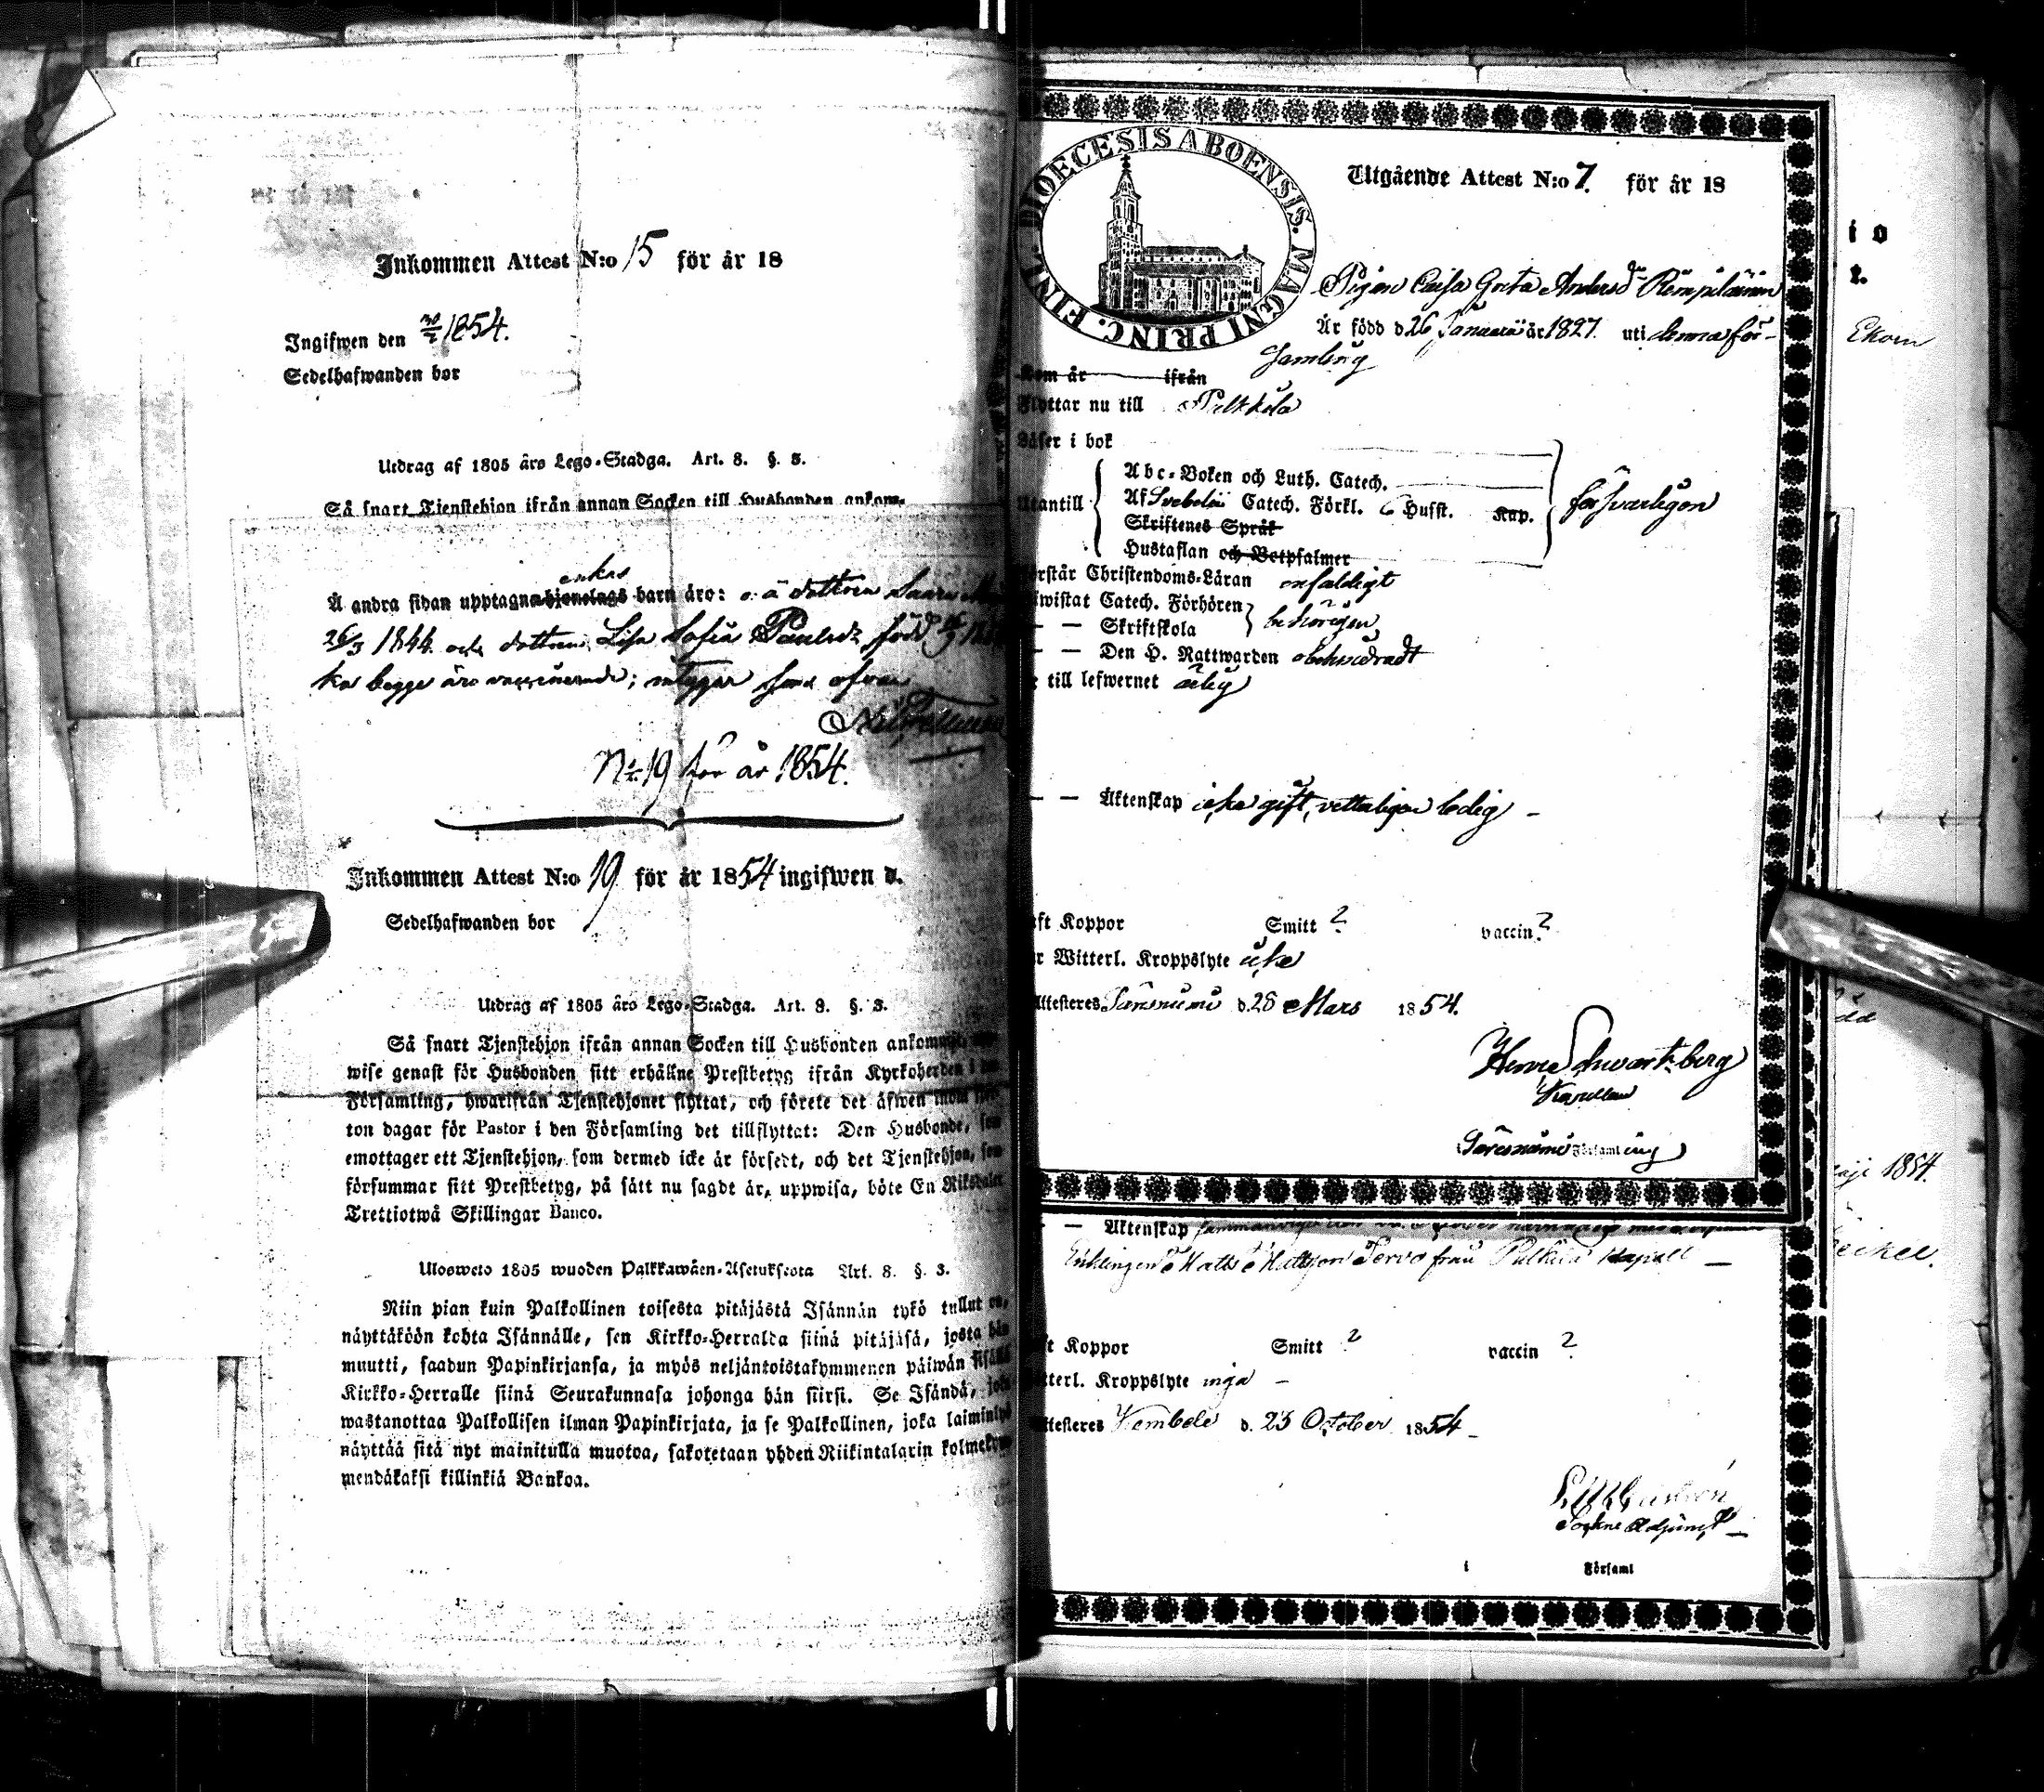 Inkommen Attest N:o 15 för år 18
Ingifwen den 30/7 1854.
Sedelhafwanden bor
Utdrag af 1805 års Lego-Stadga. Art. 8. §. 3.
Så snart Tjenstehjon ifrån annan Socken till Husbonden ankom-
enkas
Å andra sidan upptagne hjonelags barn äro: o. ä dottren Saara
26/3 1844 och dottren Lisa Sofia Paulsdr född
ka begge äro vaccinerade; intygar som ofvan
No 19 för år 1854.
Inkommen Attest N:o 19 för år 1854 ingifwen d.
Sedelhafwanden bor
Utdrag af 1805 års Lego-Stadga. Art. 8. §. 3.
Så snart Tjenstehjon ifrån annan Socken till Husbonden ankommit,
wise genast för Husbonden sitt erhållne Prestbetyg ifrån Kyrkoherden i
Församling, hwarifrån Tjenstehjonet flyttat, och förete det äfwen inom
ton dagar för Pastor i den Församling det tillflyttat: Den Husbonde, som
emottager ett Tjenstehjon, som dermed icke är försedt, och det Tjenstehjon, som
försummar sitt Prestbetyg, på sätt nu sagdt är, uppwisa, böte En Riksdaler
Trettiotwå Skillingar Banco.
Ulosweto 1805 wuoden Palkkawäen-Asetuksesta Art. 8. §. 3.
Niin pian kuin Palkollinen toisesta pitäjästä Isännän tykö tullut on,
näyttäköön kohta Isännälle, sen Kirkko-Herralda siinä pitäjäsä, josta hän
muutti, saadun Papinkirjansa, ja myös neljäntoistakymmenen päiwän sisällä
Kirkko-Herralle siinä Seurakunnasa johonga hän siirsi. Se Isändä, joka
wastanottaa Palkollisen ilman Papinkirjata, ja se Palkollinen, joka laiminlyö
näyttää sitä nyt mainitulla muotoa, sakotetaan yhden Riikintalarin kolmekym-
mendäkaksi killinkiä Bankoa.
FINL. DIOECESIS ABOENSIS. MAGNI PRINC.
Utgående Attest N:o 7. för år 18
Pigan Caisa Greta Andersdr Rempiläinen
Är född d 26 Januari år 1827. uti denna för-
samling
Kom år ifrån
Flyttar nu till Pälkkila
Läser i bok
Abc-Boken och Luth. Catech.
Utantill Af Svebelii Catech. Förkl. 6 Hufst. Kap. försvarligen
Skriftenes Språk
Hustaflan och Botpsalmer
Förstår Christendoms-Läran enfaldigt
Biwistat Catech. Förhören
— — Skriftskola behörigen
— — Den H. Nattwarden obehindradt
till lefwernet ärlig
— — Äktenskap icke gift, vetterligen ledig -
Haft Koppor Smitt ? vaccin ?
Witterl. Kroppslyte icke
Attesteres d. 28 Mars 1854.
Schwartzberg
Kapellan
Församling
— Äktenskap
Enklingen Matts Mattsson Tervo från kapell —
Koppor Smitt ? vaccin ?
Witterl. Kroppslyte inga -
Attesteres Kembele d. 23 October 1854
Sockne Adjunct
i Församl
i o
t.
Ekom
maji 1854.